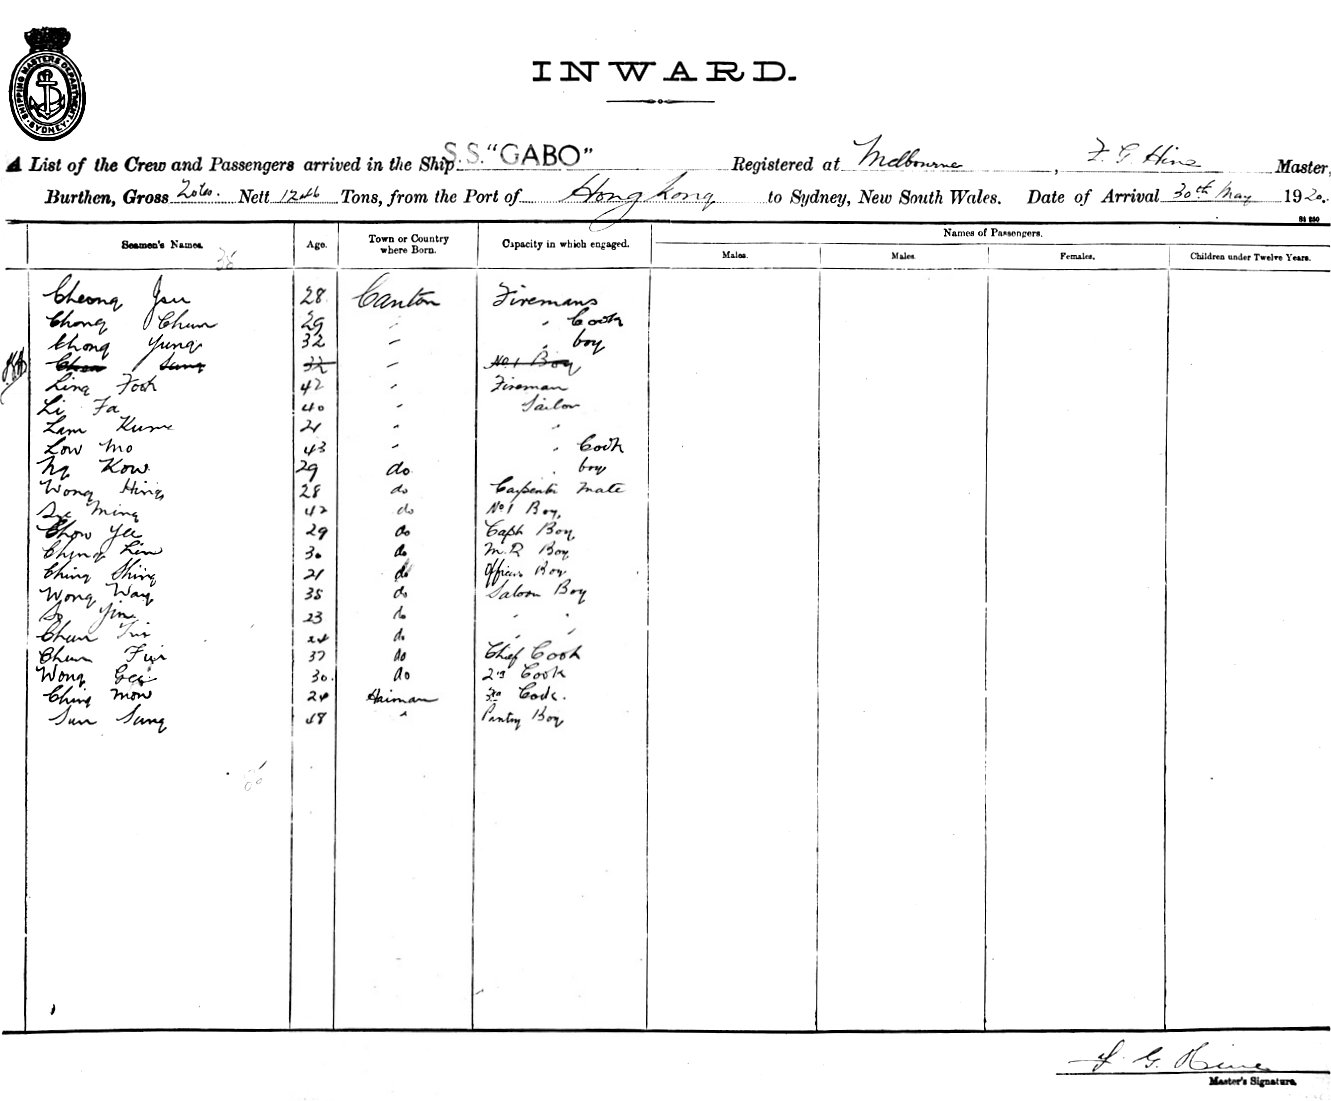 SHIPPING MASTERS DEPARTMENT
SYDNEY
INWARD.
A List of the Crew and Passengers arrived in the Ship S.S. "GABO" Registered at Melbourne, F. G. Hine Master,
Burthen, Gross Nett 1246 Tons, from the Port of Hong Kong to Sydney, New South Wales. Date of Arrival 30th May 1920.
Names of Passengers.
Seamen's Names. Age. Town or Country where Born. Capacity in which engaged. Males. Males. Females. Children under Twelve Years.
38
Cheong 28 Canton Firemans
Chong Chun 29 " " Cook
Chong Yung 32 " " boy
Sang 32 " No 1 Boy
Ling Fook 42 " Fireman
Li Fa 40 " Sailor
Lam 21 " "
Low Mo 43 " " Cook
Ng Kow 29 do " boy
Wong Hing 28 do Carpenter Mate
Ming 42 do No 1 Boy,
Chow Yee 29 do Capt Boy
Lim 30 do M.R Boy
Ching Shing 21 do Officers Boy
Wong Way 38 do Saloon Boy
So 23 do " "
Chun 24 do " "
Chun 37 do Chief Cook
Wong Gee 30. do 2nd Cook
Ching Mow 24 Hainan 3rd Cook.
Sun Sang 48 " Pantry Boy
F. G. Hine
Master's Signature.